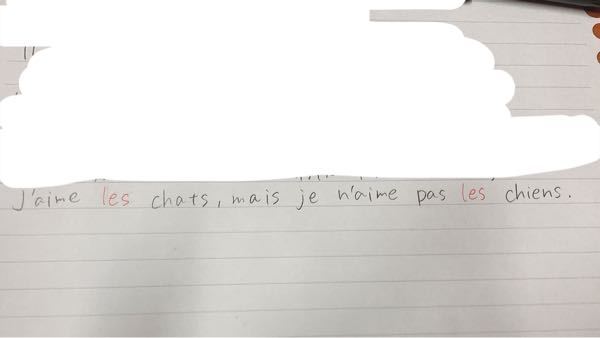 J'aime les chats, mais je n'aime pas les chiens.